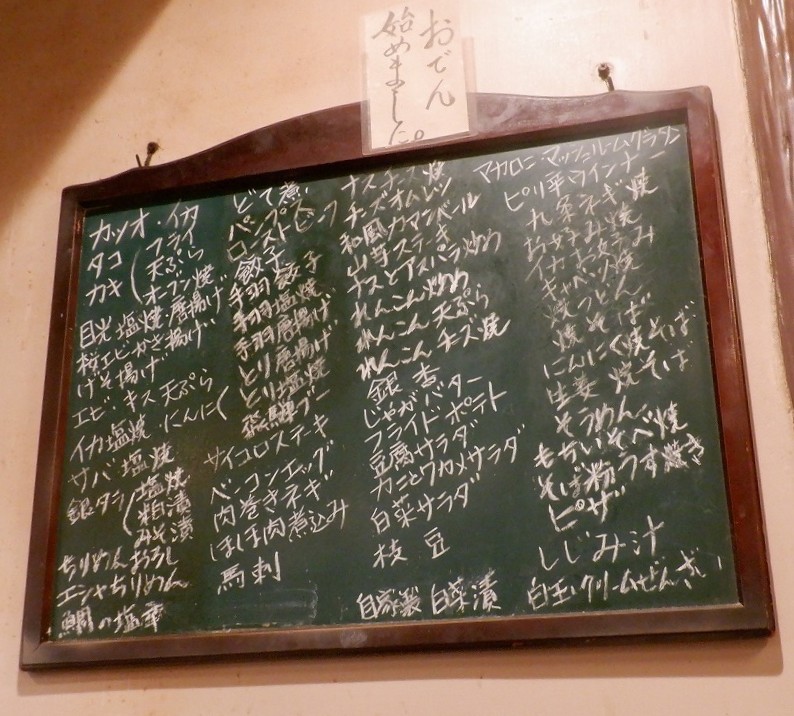 おでん
始めました。
カツオ・イカ
タコ
カキ
フライ
天ぷら
オーブン焼
目光 塩焼・唐揚げ
桜エビかき揚げ
げそ揚げ
エビ・キス 天ぷら
イカ塩焼・にんにく
サバ 塩焼
銀ダラ
塩焼
粕漬
みそ漬
ちりめんおろし
エシャちりめん
鯛の塩辛
どて煮
ローストビーフ
餃子
手羽餃子
手羽塩焼
手羽唐揚げ
とり唐揚げ
とり塩焼
サイコロステーキ
ベーコンエッグ
肉巻きネギ
ほほ肉煮込み
馬刺
ナスチーズ焼
チーズオムレツ
和風カマンベール
山芋ステーキ
ナスとアスパラ炒め
れんこん炒め
れんこん天ぷら
れんこんチーズ焼
銀杏
じゃがバター
フライドポテト
豆腐サラダ
カニとワカメサラダ
白菜サラダ
枝豆
自家製 白菜漬
マカロニ・マッシュルームグラタン
ピリ辛ウインナー
九条ネギ焼
お好み焼
イカお好み
キャベツ焼
焼うどん
焼そば
にんにく焼そば
生姜焼そば
そうめん
もちいそべ焼
そば粉うす焼き
ピザ
しじみ汁
白玉クリームぜんざい